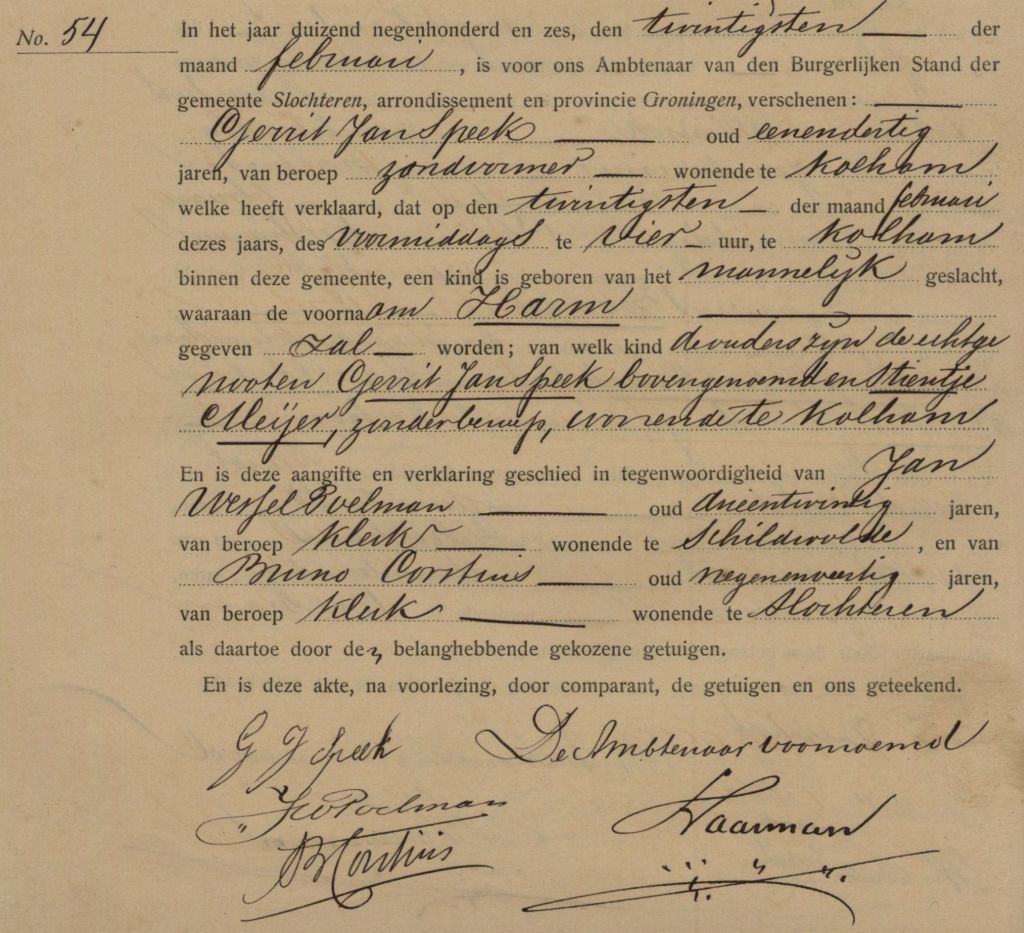 No. 54
In het jaar duizend negenhonderd en zes, den twintigsten der
maand februari, is voor ons Ambtenaar van den Burgerlijken Stand der
gemeente Slochteren, arrondissement en provincie Groningen, verschenen:
Gerrit Jan Speek oud eenendertig
jaren, van beroep zandvormer wonende te Kolham
welke heeft verklaard, dat op den twintigsten der maand februari
dezes jaars, des Voormiddags te vier uur, te Kolham
binnen deze gemeente, een kind is geboren van het mannelijk geslacht,
waaraan de voornaam Harm
gegeven zal worden; van welk kind de ouders zijn de echtge
nooten Gerrit Jan Speek bovengenoemd en Stientje
Meijer, zonder beroep, wonende te Kolham
En is deze aangifte en verklaring geschied in tegenwoordigheid van Jan
Wessel Poelman oud drieentwintig jaren,
van beroep klerk wonende te Schildwolde, en van
Bruno Corsthuis oud negenenveertig jaren,
van beroep klerk wonende te Slochteren
als daartoe door den belanghebbende gekozene getuigen.
En is deze akte, na voorlezing, door comparant, de getuigen en ons geteekend.
G J Speek De Ambtenaar voornoemd
JWPoelman
BCorsthuis Haarman